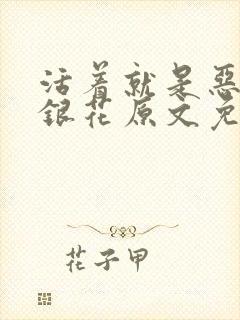 活着就是惡
銀花原文免
花子甲